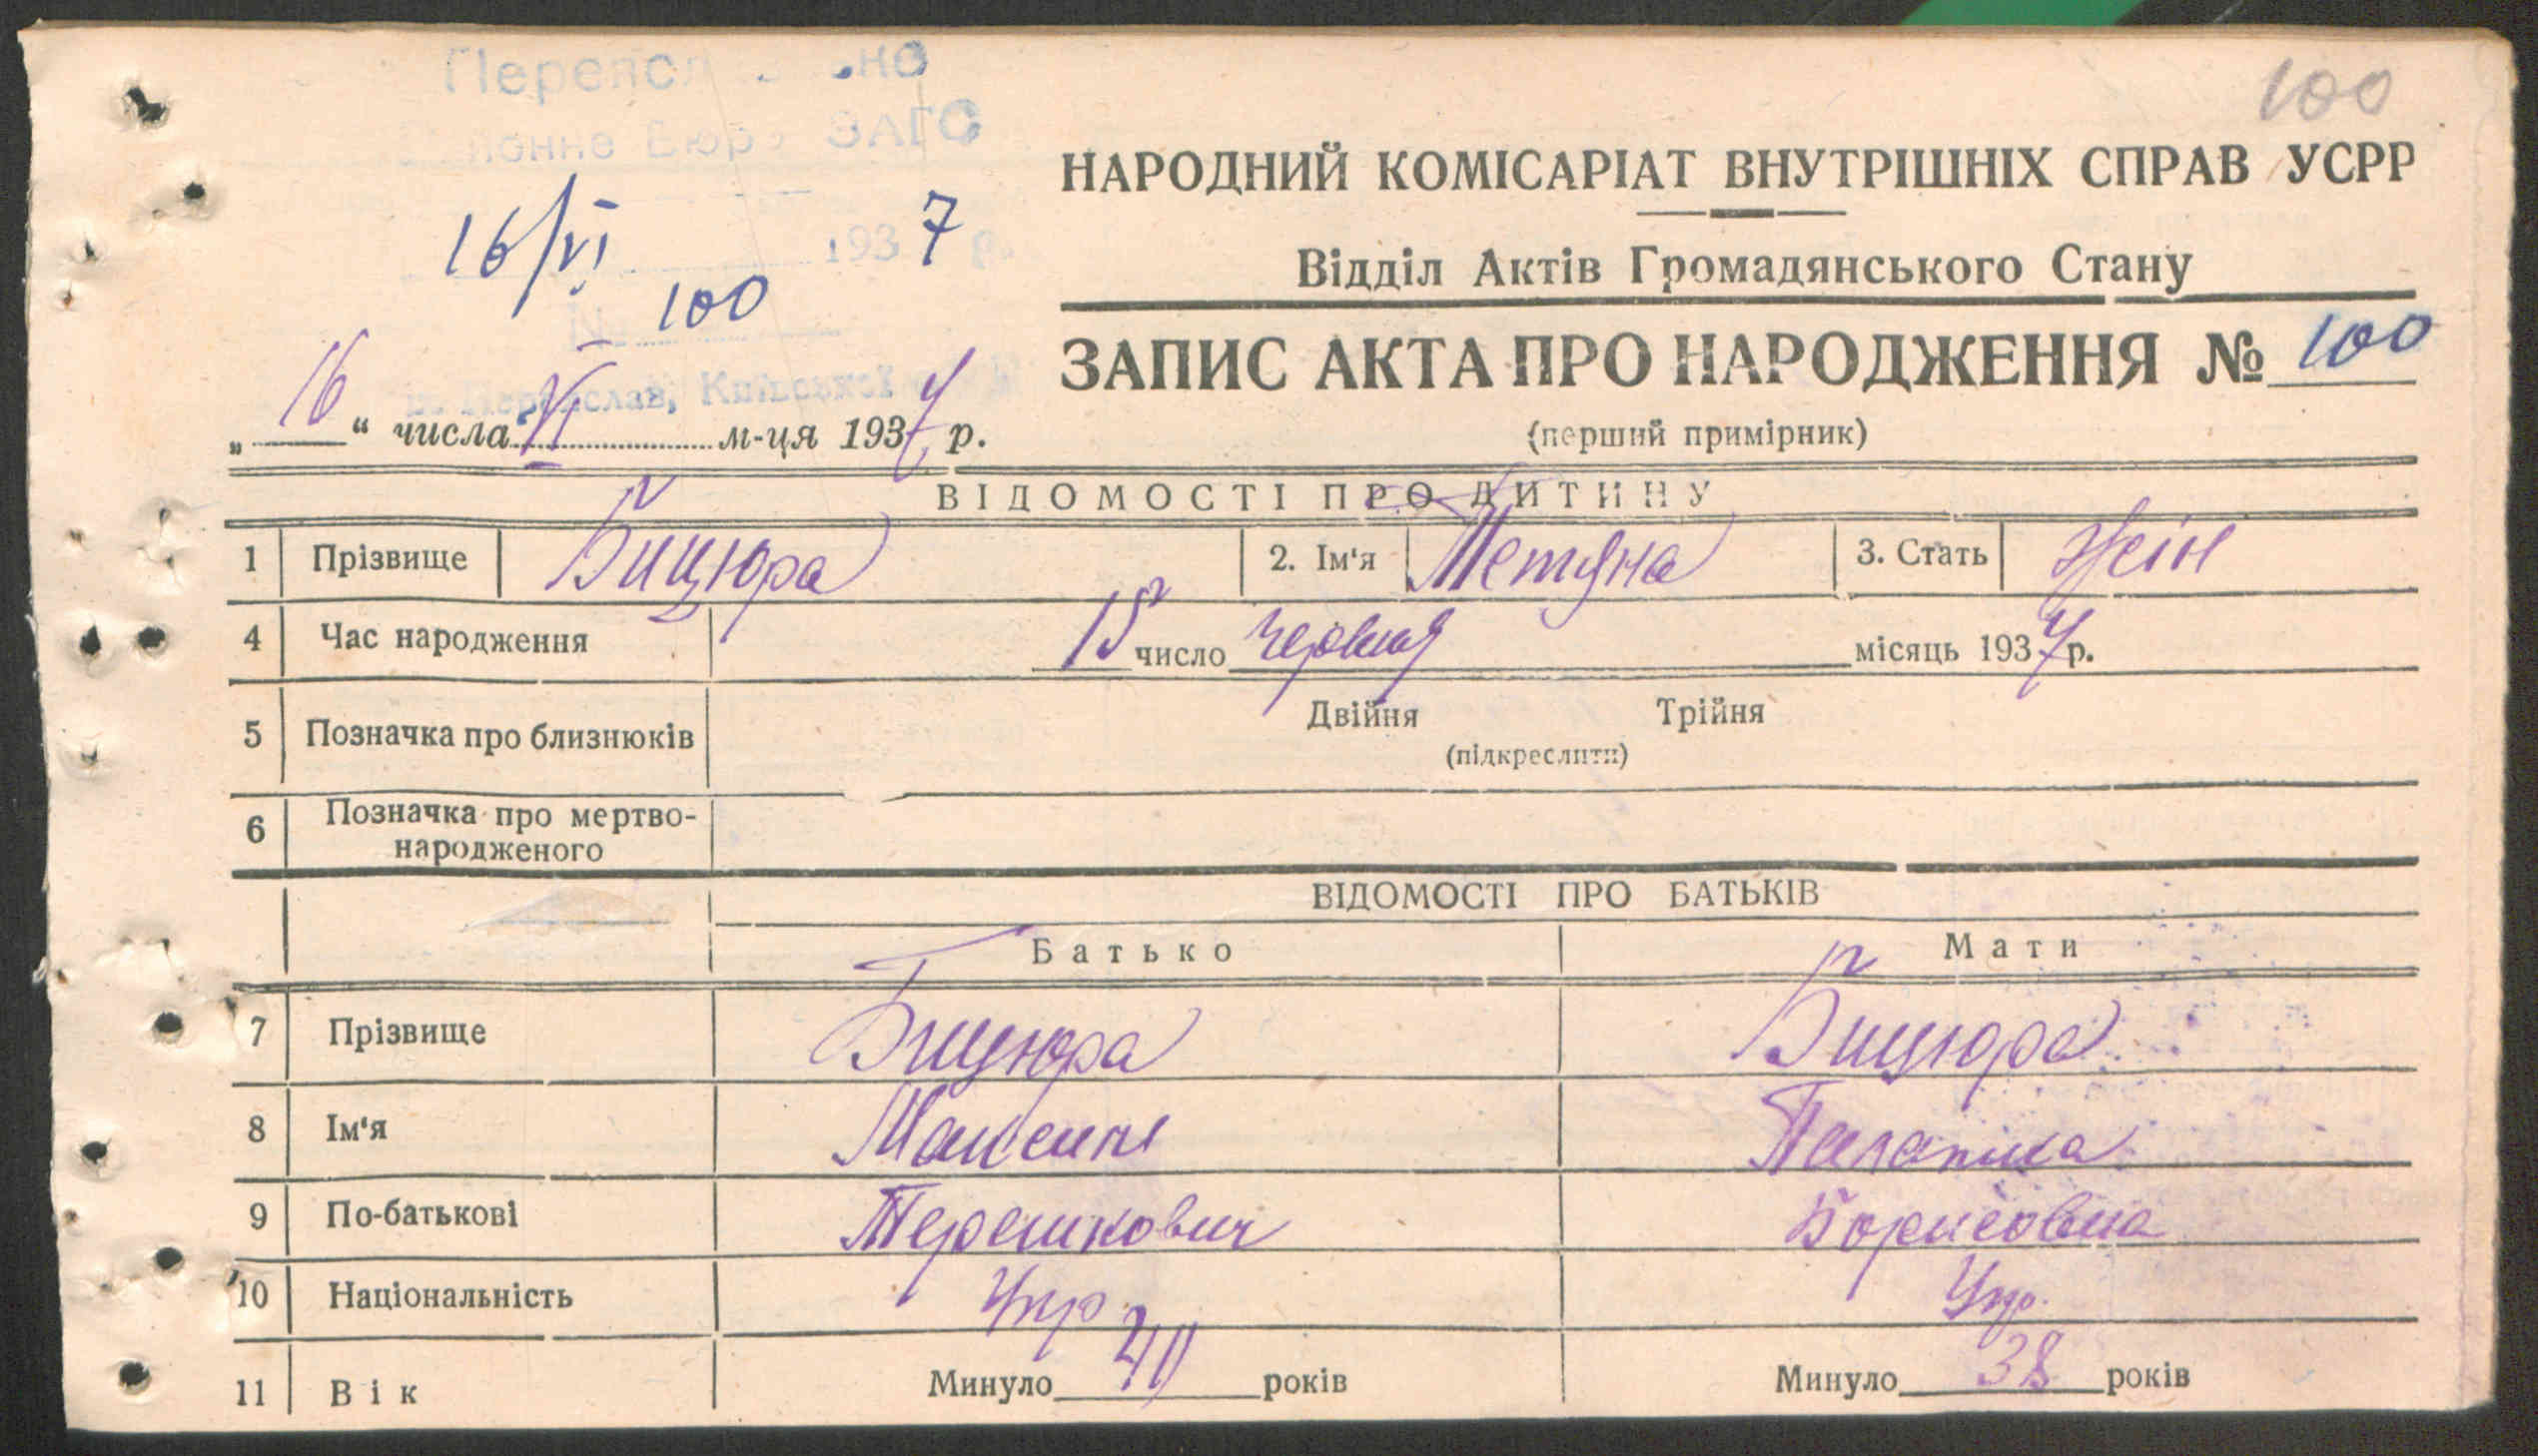 100
ЗАГС
16/VI 1937 р.
№ 100
Переяслав, Київської
НАРОДНИЙ КОМІСАРІАТ ВНУТРІШНІХ СПРАВ УСРР
Відділ Актів Громадянського Стану
ЗАПИС АКТА ПРО НАРОДЖЕННЯ № 100
„16“ числа VI м-ця 1937 р.
(перший примірник)
ВІДОМОСТІ ПРО ДИТИНУ
1 Прізвище Бицюра 2. Ім'я Тетяна 3. Стать жін
4 Час народження 15 число червня місяць 1937 р.
5 Позначка про близнюків Двійня Трійня
(підкреслити)
6 Позначка про мертво-
народженого
ВІДОМОСТІ ПРО БАТЬКІВ
Батько Мати
7 Прізвище Бицюра Бицюра
8 Ім'я Максим
9 По-батькові Терешкович Борисовна
10 Національність Укр Укр.
11 Вік Минуло 40 років Минуло 38 років